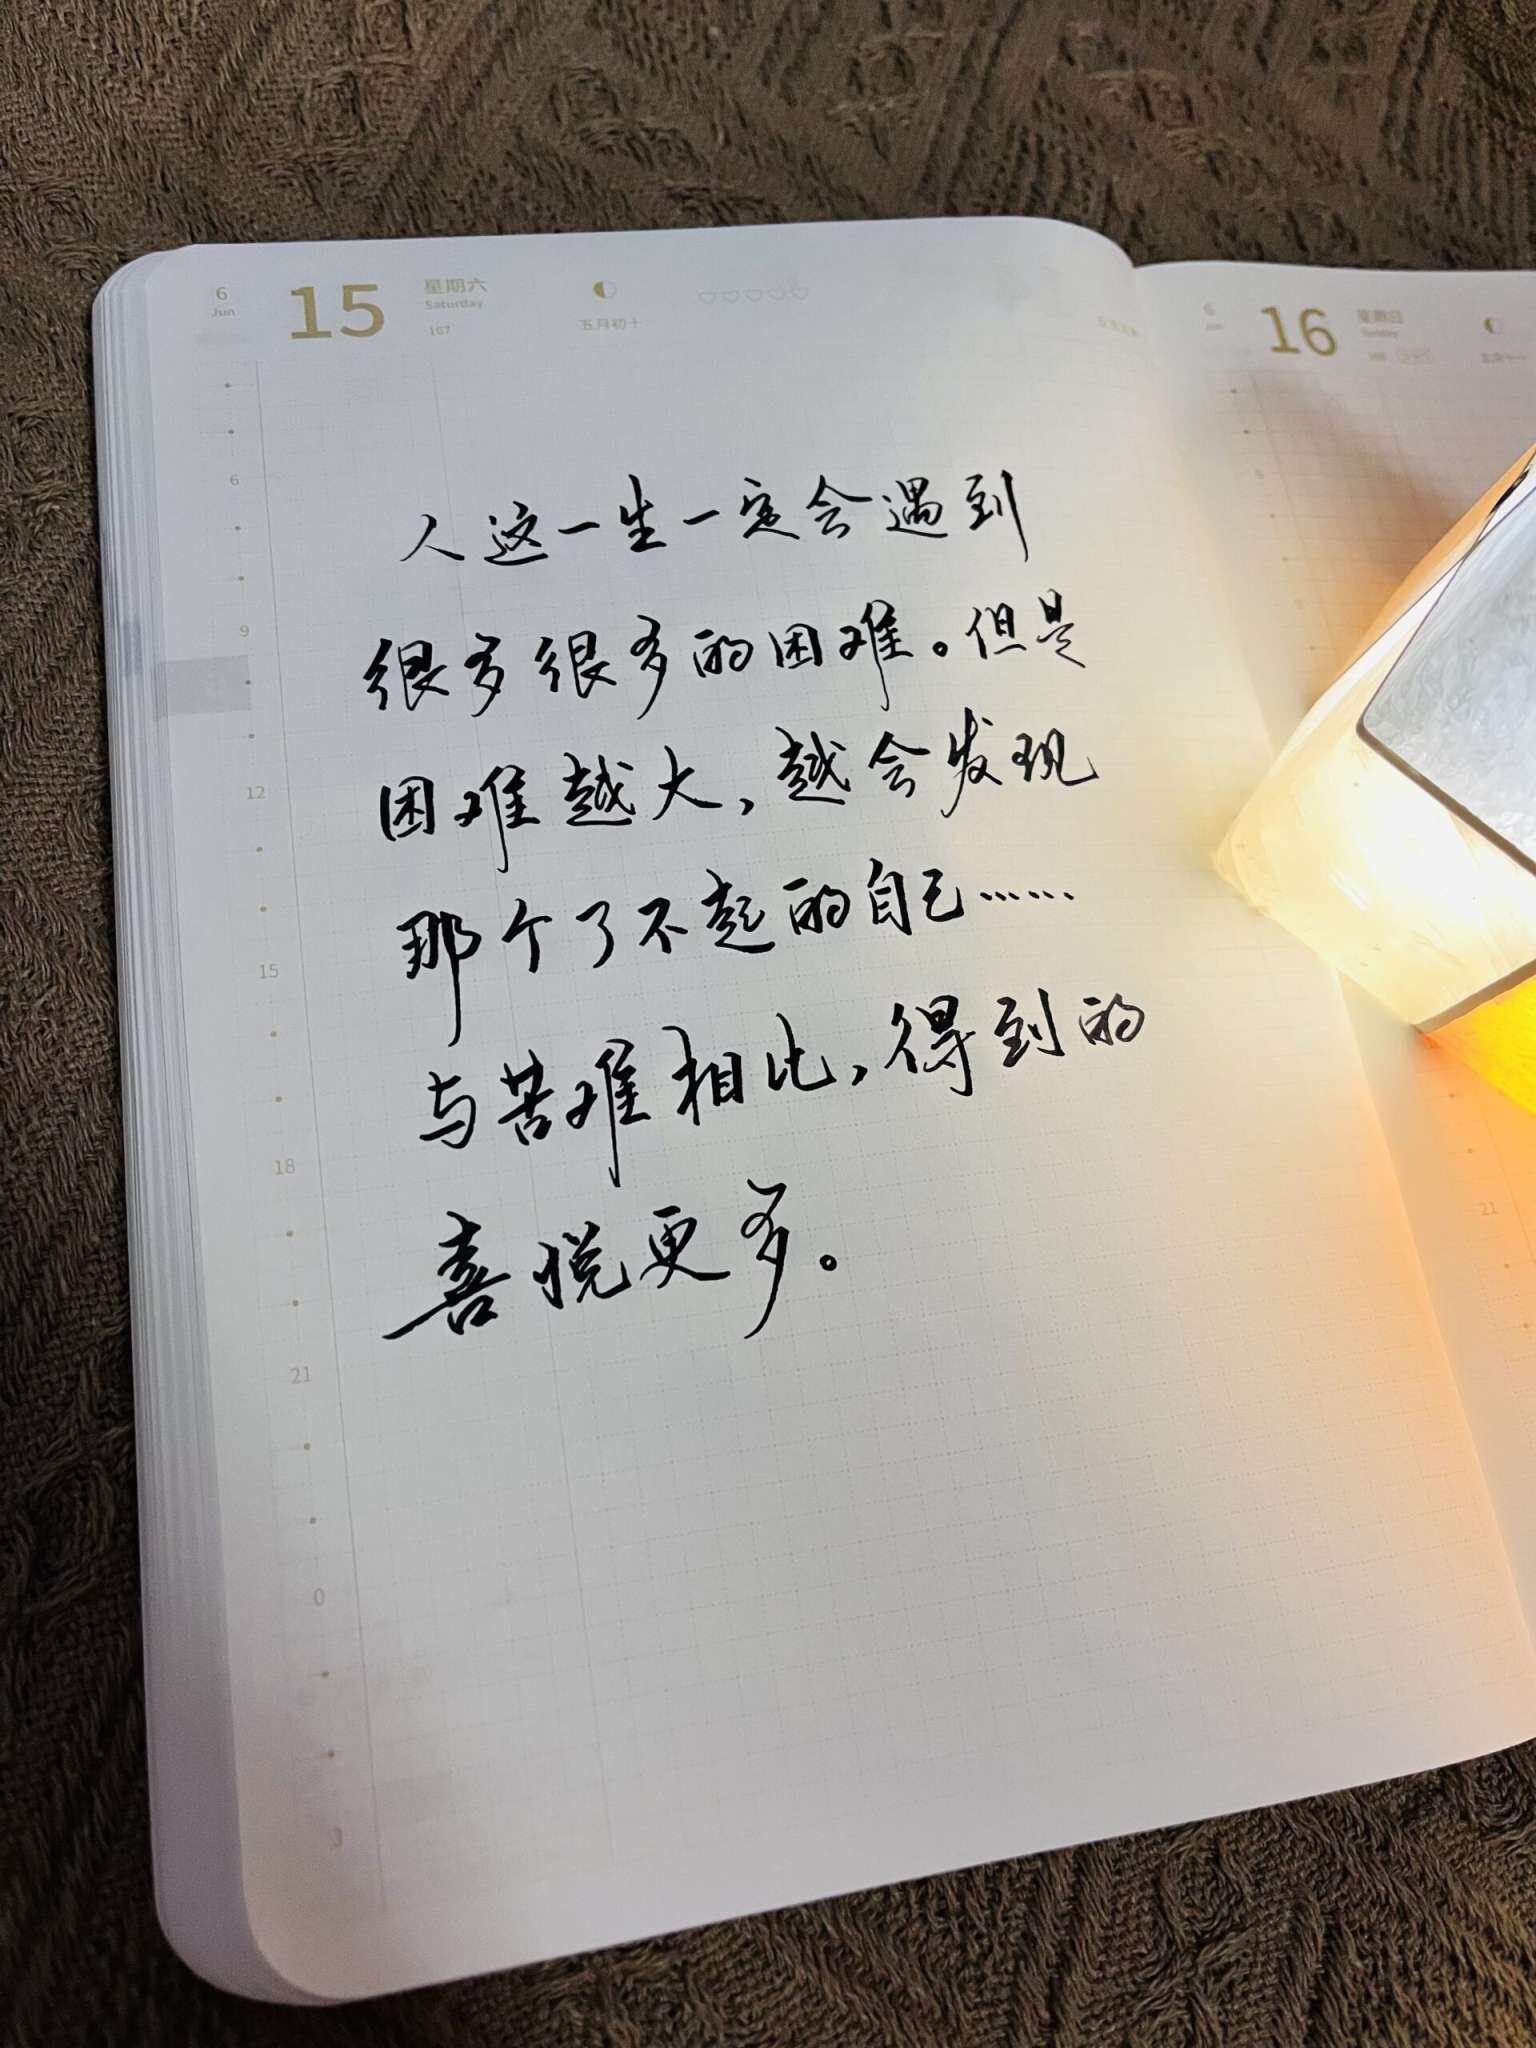 6
Jun
15
星期六
Saturday
167
五月初十
6
9
12
15
18
21
0
3
人这一生一定会遇到
很多很多的困难。但是
困难越大，越会发现
那个了不起的自己……
与苦难相比，得到的
喜悦更多。
6
Jun
16
星期日
Sunday
21